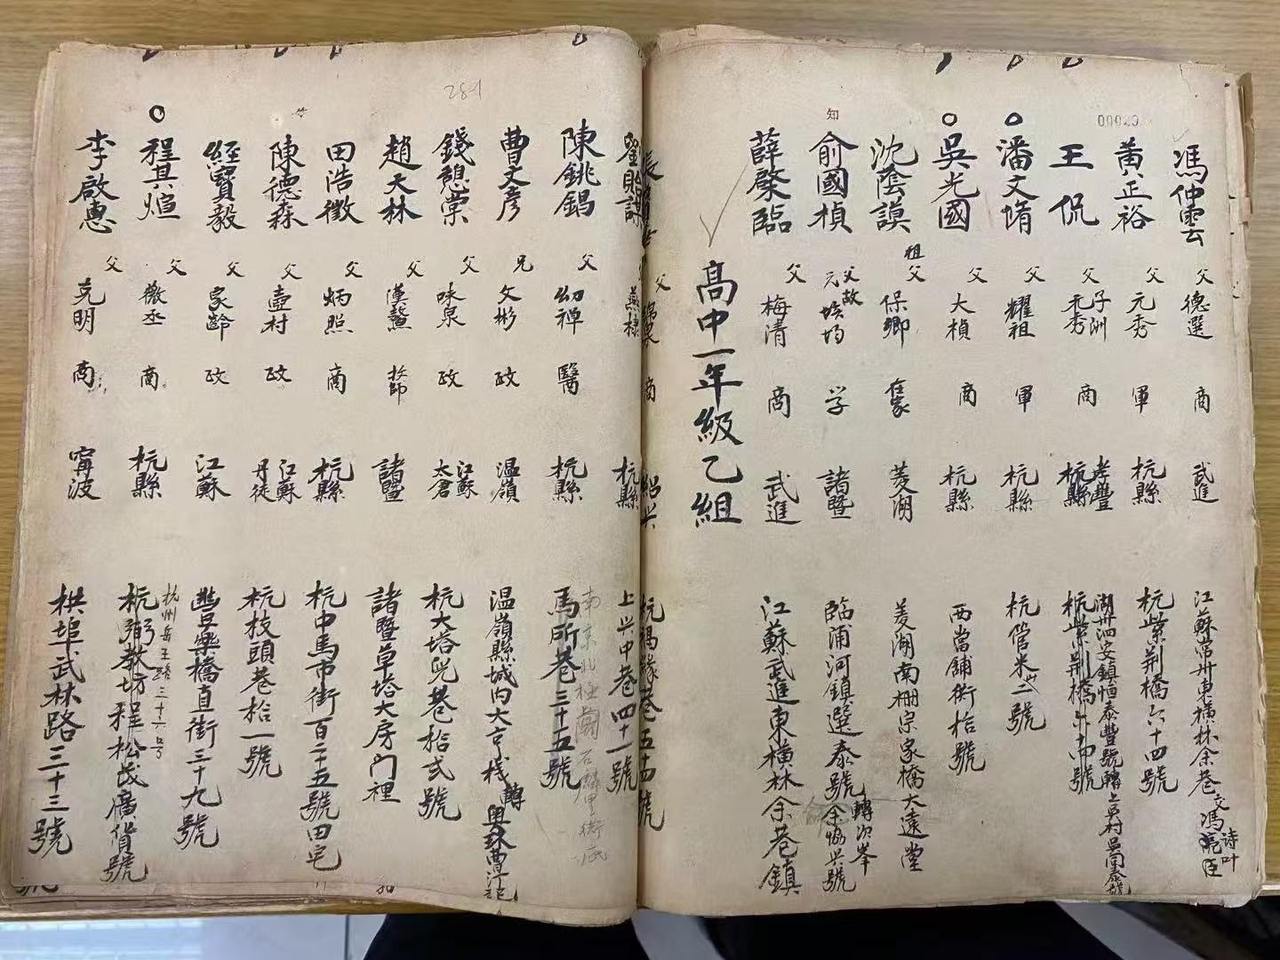 00020
馮仲雲 父 德選 商 武進 江蘇常州東橫林余巷交馮亮臣 诗叶
黃正裕 父 元秀 軍 杭縣 杭紫荆橋六十四號
王侃 父 子洲 元秀 商 孝豐 杭縣 湖州泗安鎮恒泰豐號轉上吴村吴同泰號 杭紫荆橋六十四號
潘文堉 父 耀祖 軍 杭縣 杭管米山二號
吳光國 父 大楨 商 杭縣 西當鋪衖拾號
沈蔭謨 祖父 保卿 在家 菱湖 菱湖南栅宗家橋大遠堂
知
俞國楨 父故 元培均 学 諸暨 臨浦河鎮選泰號轉次峯余協興號
薛槩臨 父 梅清 商 武進 江蘇武進東橫林余巷鎮
高中一年級乙組
張 父 商 紹兴 杭福緣巷五十四號
劉貽謀 燕棣 杭縣 上兴中巷四十一號
陳銚鍚 父 幼禪 醫 杭縣 馬所巷三十五號
南京北極閣石
曹文彦 兄 文彬 政 温嶺 温嶺縣城内大亨栈轉
281
錢憩棠 父 味泉 政 江蘇太倉 杭大塔兒巷拾弍號
趙大林 父 漢鰲 師 諸暨 諸暨草塔大房门裡
田浩徵 父 炳照 商 杭縣 杭中馬市街百二十五號田宅
陳德森 父 壺村 政 江蘇丹徒 杭枝頭巷拾一號
經寶毅 父 家齡 政 江蘇 豐樂橋直街三十九號
程其煊 父 薇丞 商 杭縣 杭弼教坊程松茂廣貨號
杭州岳王路三十六号
李啟惠 父 克明 商 甯波 栱埠武林路三十三號